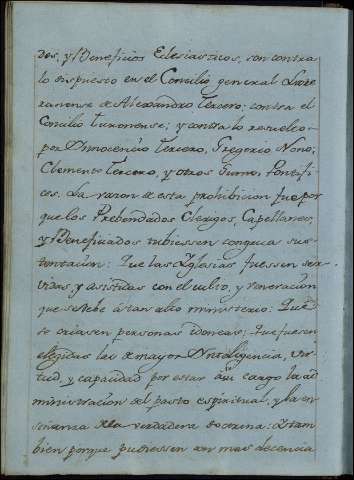 dos, y Beneficios Eclesiasticos, son contra
lo dispuesto en el Concilio general Latera
ranense de Alexandro Tercero; contra el
Concilio Turonense; y contra lo resuelto
por Innocencio Tercero, Gregorio Nono,
Clemente Tercero, y otros Sumos Pontifi
ces. La razon de esta prohibicion fue por
que los Prebendados Clerigos, Capellanes,
y Beneficiados tubiessen congrua sus
tentacion: Que las Iglesias fuessen ser
vidas, y asistidas con el culto, y veneracion
que se debe à tan alto ministerio: Que
se criasen personas idoneas; Que fuesen
elegidas las de mayor Inteligencia, vir
tud, y capacidad por estar à su cargo la ad
ministracion del pasto espiritual, y la en
señanza de la verdadera doctrina: Y tam
bien porque pudiessen con mas decencia